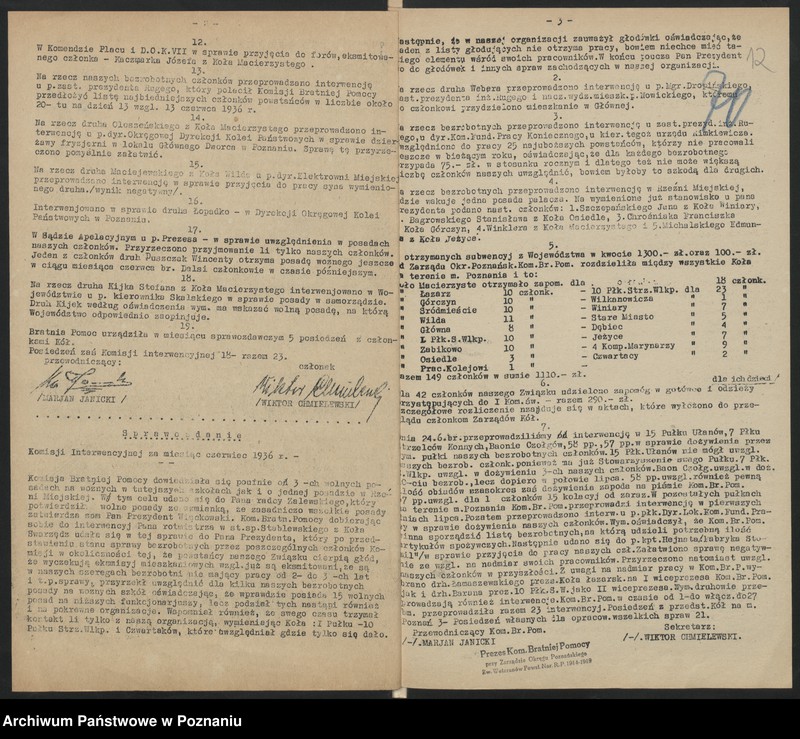 - 2 -
12.
W Komendzie Placu i D.O.K.VII w sprawie przyjęcia do fortów, eksmitowa-
nego członka - Kaczmarka Józefa z Koła Macierzystego .
13.
Na rzecz naszych bezrobotnych członków przeprowadzano interwencję
u p.zast. prezydenta Rugego, który polecił Komisji Bratniej Pomocy
przedłożyć listę najbiedniejszych członków powstańców w liczbie około
20- tu na dzień 13 wzgl. 13 czerwca 1936 r.
14.
Na rzecz druha z Koła Macierzystego przeprowadzono in-
terwencję u p.dyr.Okręgowej Dyrekcji Kolei Państwowych w sprawie dzier
żawy fryzjerni w lokalu Głównego Dworca w Poznaniu. Sprawę tę przyrze-
czono pomyślnie załatwić.
15.
Na rzecz druha Maciejewskiego z Koła Wilda u p.dyr.Elektrowni Miejskiej
przeprowadzono interwencję w sprawie przyjęcia do pracy syna wymienio-
nego druha./wynik negatywny/.
16.
Interwenjowano w sprawie druha Łopadko - w Dyrekcji Okręgowej Kolei
Państwowych w Poznaniu.
17.
W Sądzie Apelacyjnym u p.Prezesa - w sprawie uwzględnienia w posadach
naszych członków. Przyrzeczono przyjmowanie li tylko naszych członków.
Jeden z członków druh Puszczak Wincenty otrzyma posadę woznego jeszcze
w ciągu miesiąca czerwca br. Dalsi członkowie w czasie późniejszym.
18.
Na rzecz druha Kijka Stefana z Koła Macierzystego interwenjowano w Wo-
jewództwie u p. kierownika Skalskiego w sprawie posady w samorządzie.
Druh Kijek według oświadczenia wym. ma wskazać wolną posadę, na którą
Województwo odpowiednio zaopinjuje.
19.
Bratnia Pomoc urządziła w miesiącu sprawozdawczym 5 posiedzeń z człon-
kami Kół.
Posiedzeń zaś Komisji interwencyjnej 18- razem 23.
przewodniczący:
członek
/MARJAN JANICKI /
/WIKTOR CHMIELEWSKI/
S p r a w o z d a n i e
Komisji Interwencyjnej za miesiąc czerwiec 1936 r. -
Komisja Bratniej Pomocy dowiedziała się poufnie o 3 -ch wolnych po-
sadach na woznych w tutejszych szkołach jak i o jednej posadzie w Rzeź
ni Miejskiej. W tym celu udano się do Pana radcy Zalewskiego, który
potwierdził wolne posady ze wzmianką, że zasadniczo wszelkie posady
zatwierdza sam Pan Prezydent Więckowski. Kom.Brat.Pomocy dobierając
sobie do interwencji Pana rotmistrza w st.sp.Stablewskiego z Koła
Swarzędz udała się w tej sprawie do Pana Prezydenta, który po przed-
stawieniu stanu sprawy bezrobotnych przez poszczególnych członków Ko-
misji w okoliczności tej, że powstańcy naszego Związku cierpią głód,
że wyczekują eksmisyj mieszkaniowych wzgl.już są eksmitowani, że są
w naszych szeregach bezrobotni nie mający pracy od 2- do 3 -ch lat
i t.p.sprawy, przyrzekł uwzględnić dla kilku naszych bezrobotnych
posady na woznych szkół oświadczając, że wprawdzie posiada 15 wolnych
posad na niższych funkcjonarjuszy, lecz podział tych nastąpi również
i na pokrewne organizacje. Wspomniał również, że swego czasu trzymał
kontakt li tylko z naszą organizacją, wymieniając Koła : I Pułku -10
Pułku Strz.Wlkp. i Czwartaków, które uwzględniał gdzie tylko się dało.
- 3 -
12
astępnie, iż w naszej organizacji zauważył głodówki oświadczając, że
aden z listy głodujących nie otrzyma pracy, bowiem niechce mieć ta-
iego elementu wśród swoich pracowników.W końcu poucza Pan Prezydent
o do głodówek i innych spraw zachodzących w naszej organizacji.
2.
a rzecz druha Webera przeprowadzono interwencję u p.Mgr.
ast.prezydenta inż.Rugego i nacz.wydz.mieszk.p.Nowickiego,
o członkowi przydzielono mieszkanie w Głównej.
3.
a rzecz bezrobotnych przeprowadzono interwencję u zast.prezyd.inż.Ru-
ego, u dyr.Kom.Fund.Pracy Koniecznego, u kier.tegoż urzędu
względniono do pracy 25 najuboższych powstańców, którzy nie pracowali
eszcze w bieżącym roku, oświadczając, że dla każdego bezrobotneg.
rzypada 75.- zł. w stosunku rocznym i dlatego też nie może większą
iczbę członków naszych uwzględnić, bowiem byłoby to szkodą dla drugich.
4.
a rzecz bezrobotnych przeprowadzono interwencję w Rzeźni Miejskiej,
dzie wakuje jedna posada palacza. Na wymienione już stanowisko u pana
rezydenta podano nast. członków: 1.Szczepańskiego Jana z Koła Winiary,
. Bagrowskiego Stanisława z Koła Osiedle, 3. Chroźniaka Franciszka
Koła Górczyn, 4.Winklera z Koła Macierzystego i 5.Michalskiego Edmun-
a z Koła Jeżyce.
5.
otrzymanych subwencyj z Województwa w kwocie 1300.- zł.oraz 100.- zł.
d Zarządu Okr.Poznańsk.Kom.Br.Pom. rozdzieliła między wszystkie Koła
a terenie m. Poznania i to:
oło Macierzyste otrzymało zapom. dla 18 członk.
" Łazarz 10 członk. - 10 Płk.Strz.Wlkp. dla 23 "
" Górczyn 10 " - Wilkanowicza " 1 "
" Śródmieście 10 " - Winiary " 7 "
" Wilda 11 " - Stare Miasto " 5 "
" Główna 8 " - Dębiec " 4 "
" I Płk.S.Wlkp. 10 " - Jeżyce " 7 "
" Żabikowo 10 " - 4 Komp.Marynarzy " 9 "
" Osiedle 3 " - Czwartacy " 2 "
" Prac.Kolejowi 1 "
azem 149 członków w sumie 1110.- zł.
6.
dla ich dzieci
la 42 członków naszego Związku udzielono zapomóg w gotówce i odzieży
rzystępujących do I Kom.św. - razem 290.- zł.
zczegółowe rozliczenie znajduje się w aktach, które wyłożono do prze-
lądu członkom Zarządów Kół.
7.
nia 24.6.br.przeprowadziliśmy interwencję w 15 Pułku Ułanów, 7 Pułku
trzelców Konnych, Baonie Czołgów, 58 pp., 57 pp.w sprawie dożywienia przez
ym. pułki naszych bezrobotnych członków.15 Płk.Ułanów nie mógł uwzgl.
aszych bezrob. członk.ponieważ ma już Stowarzyszenie swego Pułku.7 Płk.
.Wlkp. uwzgl. w dożywieniu 3-ch naszych członków.Baon Czołg.uwzgl.w doż.
0-ciu bezrob., lecz dopiero w połowie lipca. 58 pp.uwzgl.również pewną
lość obiadów wzamokres zaś dożywienia zapoda na piśmie Kom.Br.Pom.
7 pp.uwzgl. dla 1 członków 15 kolacyj od zaraz.W pozostałych pułkach
a terenie m.Poznania Kom.Br.Pom.przeprowadzi interwencję w pierwszych
niach lipca.Pozatem przeprowadzono interw. u p.płk.Dyr.Lok.Kom.Fund.Pra-
y w sprawie dożywienia naszych członków.Wym.oświadczył, że Kom.Br.Pom.
inna sporządzić listę bezrobotnych, na którą udzieli potrzebną ilość
rtykułów spożywczych.Następnie udano się do p.kpt.Hejnsta/fabryka Sto-
/w sprawie przyjęcia do pracy naszych czł.Załatwiono sprawę negatyw-
ie ze wzgl. na nadmiar swoich pracowników.Przyrzeczono natomiast uwzgl.
aszych członków w przyszłości.Z uwagi na nadmiar pracy w Kom.Br.P.wy-
brano drh.Zaomaszewskiego preza.Koła Łazarsk.na I wiceprezesa Kom.Br.Pom.
jak i drh.Barana prez.10 Płk.S.W.jako II wiceprezesa.Wym.druhowie prze-
prowadzają również interwencje.Kom.Br.Pom.w czasie od 1-do włącz.do27
bm. przeprowadziła razem 23 interwencyj.Posiedzeń z przedst.Kół na m.
Poznań 3- Posiedzeń własnych dla opracow.wszelkich spraw 21.
Przewodniczący Kom.Br.Pom.
Sekretarz:
/-/.MARJAN JANICKI
/-/.WIKTOR CHMIELEWSKI.
Prezes Kom. Bratniej Pomocy
przy Zarządzie Okręgu Poznańskiego
Zw. Weteranów Powst. Nar. R.P. 1914-1919
Archiwum Państwowe w Poznaniu